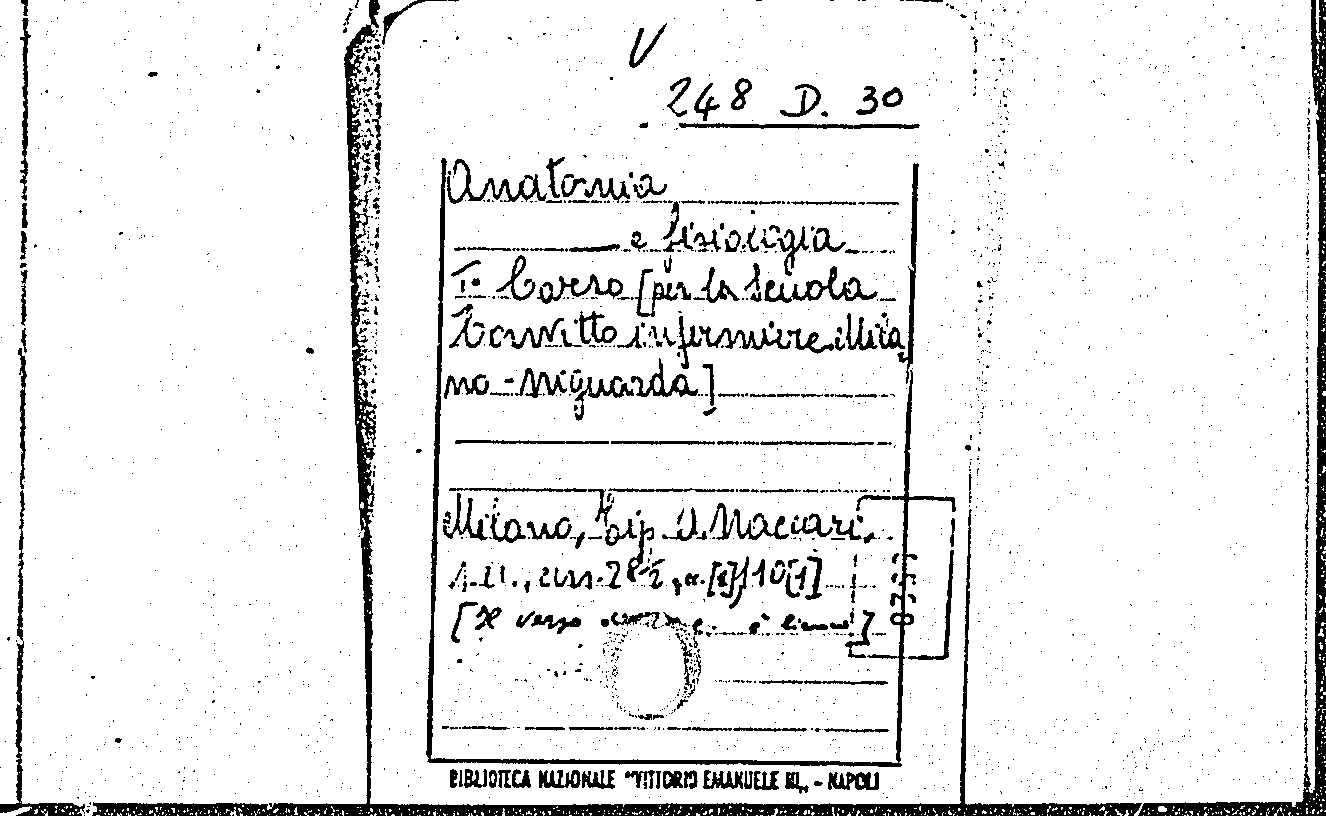 V
248 D. 30
Anatomia
e fisiologia
I° Corso [per la Scuola
Convitto infermiere. Mila,
no - Niguarda]
Milano, Tip. U. Maccari,
s.d., cm. 28½, cc. [1] 10 [1]
[Il verso è bianco]
BIBLIOTECA NAZIONALE "VITTORIO EMANUELE III„ - NAPOLI